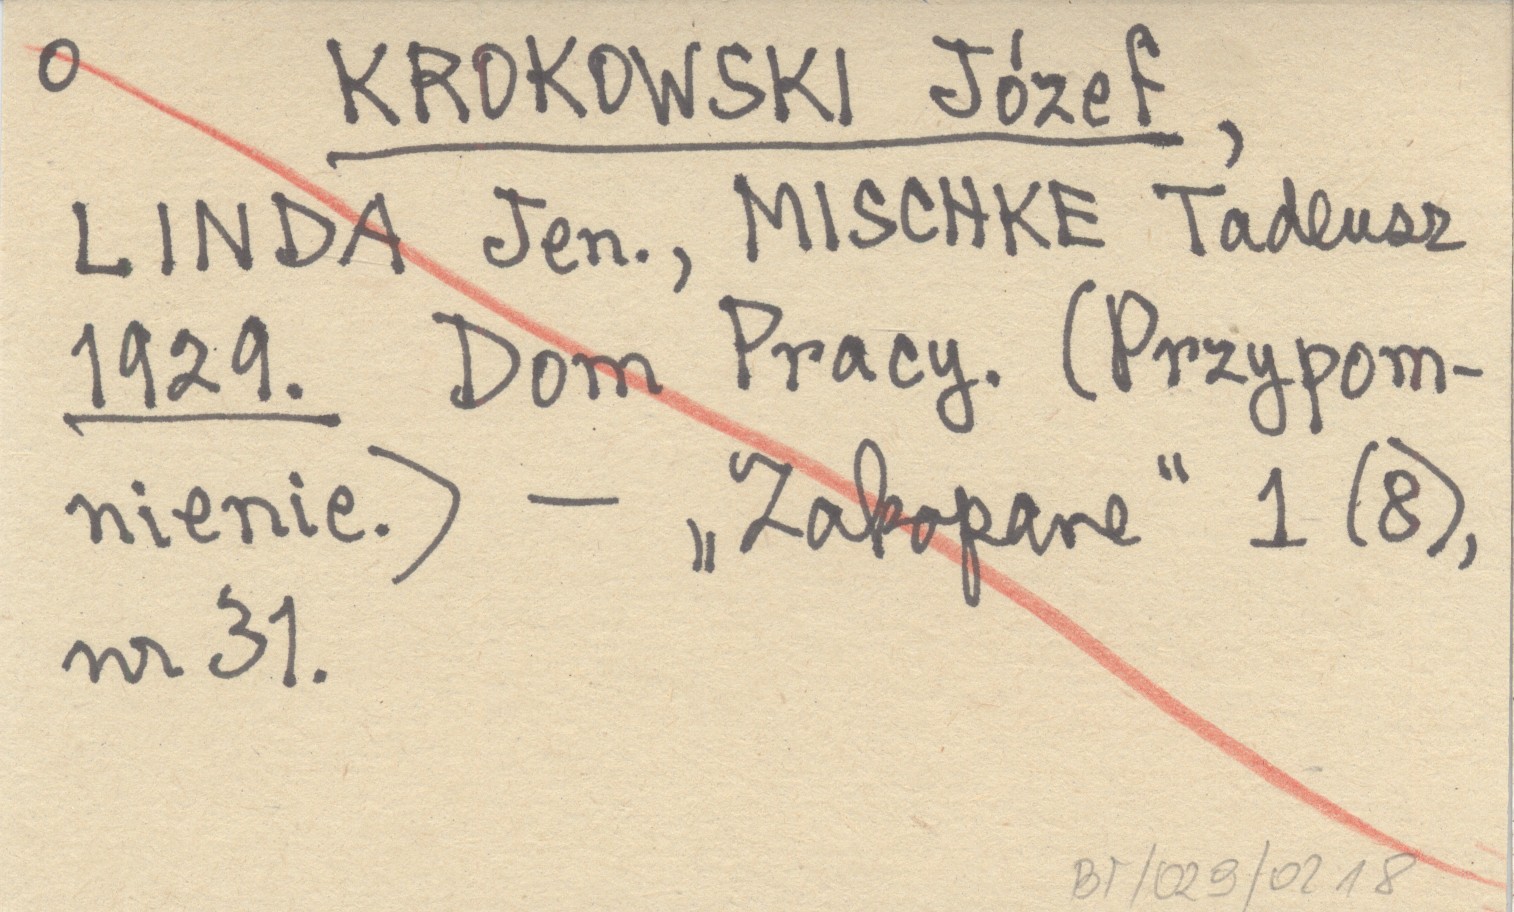 O KROKOWSKI Józef,
LINDA Jen., MISCHKE Tadeusz
1929. Dom Pracy. (Przypom-
nienie.) — „Zakopane" 1 (8),
nr 31.
BT/029/0218